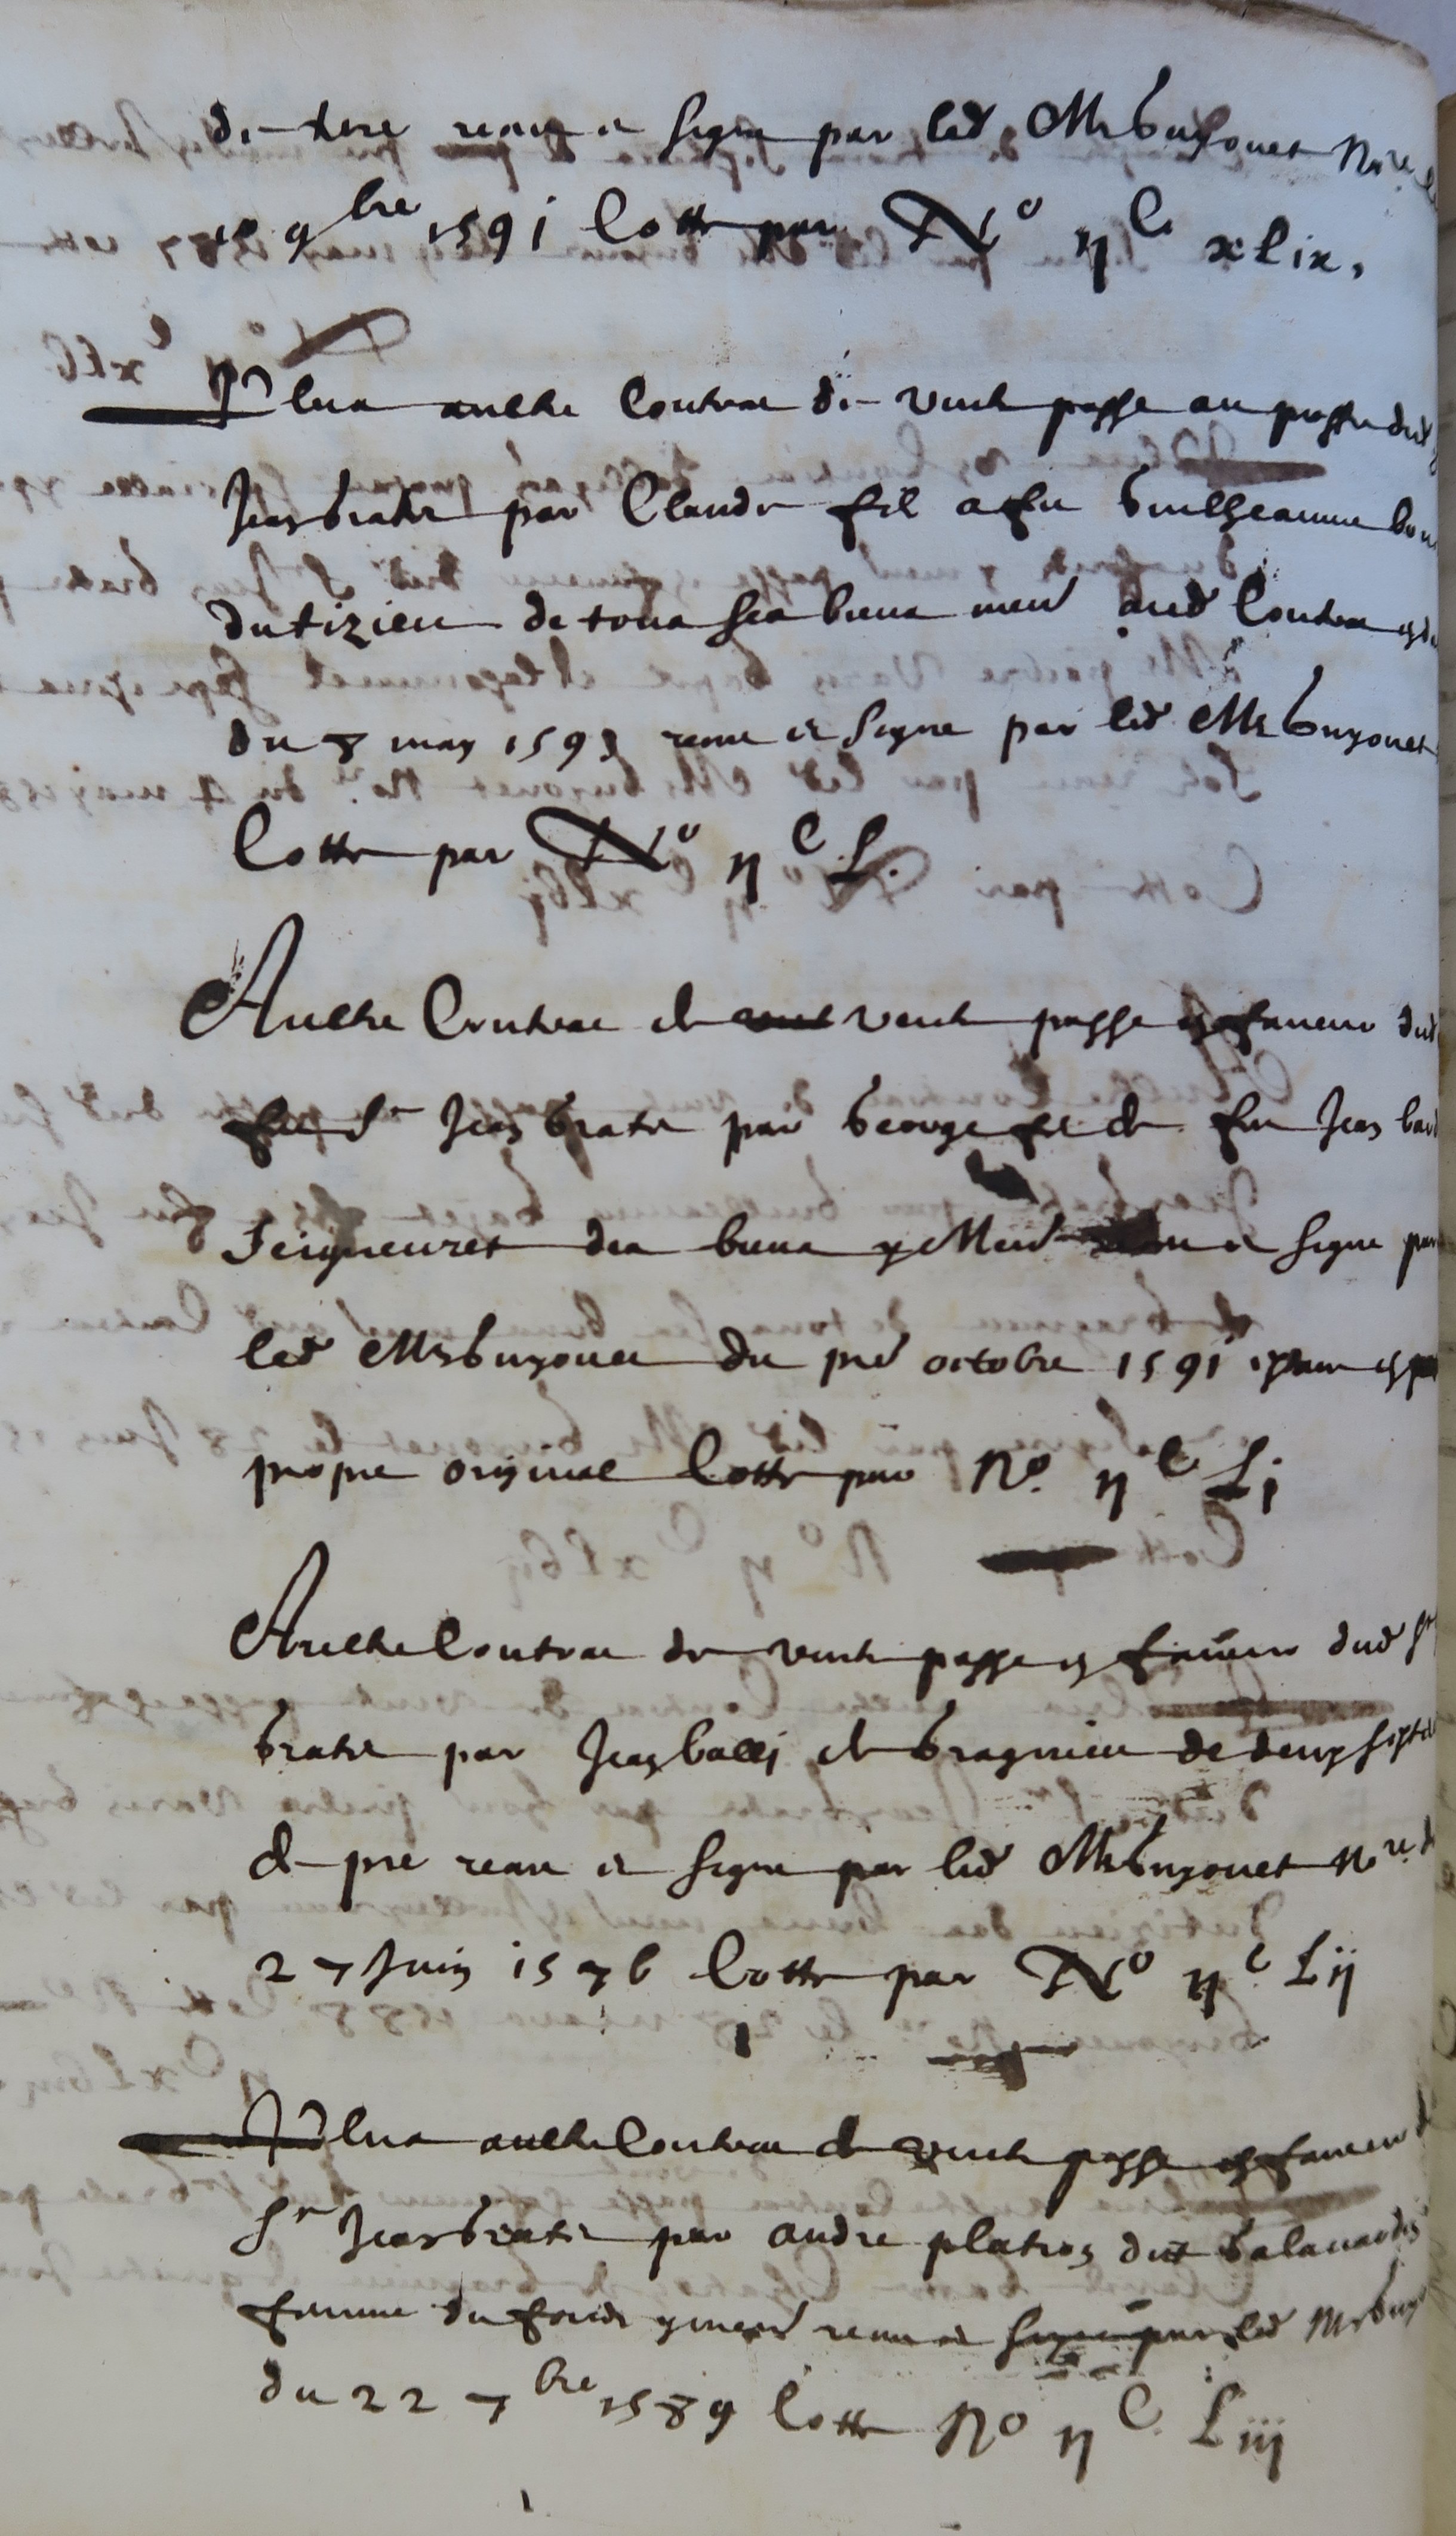 de terre receu et signe par led Mr Guyonet Nore
10 9bre 1591 Cotte par No ijC xLix.
Plus aultre Contrac de vente passe au proffit dud
Jean Gratte par Claude fil a feu Guilheaume
dutizieu de tous ses biens men aud Contrac
du 8 may 1593 receu et signe par led Mr Guyonet
Cotte par No ijC L.
Aultre Contrac de vente passe en faveur dud
feu Sr Jean Gratte par George fil de feu Jean
Seigneuret des biens y Men et signe par
led Mr Guyonet du pre octobre 1591
propre original Cotte par No. ijC Lj
Aultre Contrac de vente passe en faveur dud Sr
Gratte par Jean balli de bragnieu de deux
de pre receu et signe par led Mr Guyonet Nore
27 Juin 1576 Cotte par No ijC Lij
Plus aultre Contrac de vente passe en faveur
Sr Jean Gratte par andre platron dut
femme du fonds y men receu et signe par led Mr
du 22 7bre 1589 Cotte No ijC Liij